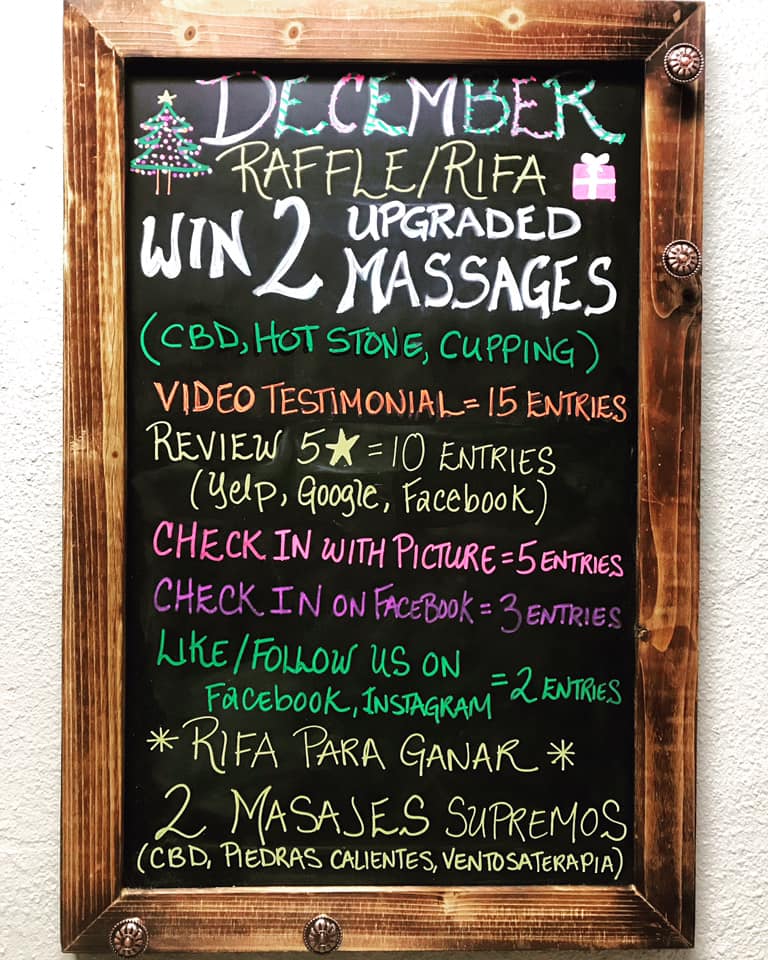 DECEMBER
RAFFLE/RIFA
WIN 2 UPGRADED
MASSAGES
(CBD, HOT STONE, CUPPING)
VIDEO TESTIMONIAL = 15 ENTRIES
REVIEW 5★ = 10 ENTRIES
(Yelp, Google, Facebook)
CHECK IN WITH PICTURE = 5 ENTRIES
CHECK IN ON FACEBOOK = 3 ENTRIES
LIKE/FOLLOW US ON
FACEBOOK, INSTAGRAM = 2 ENTRIES
* RIFA PARA GANAR *
2 MASAJES SUPREMOS
(CBD, PIEDRAS CALIENTES, VENTOSATERAPIA)